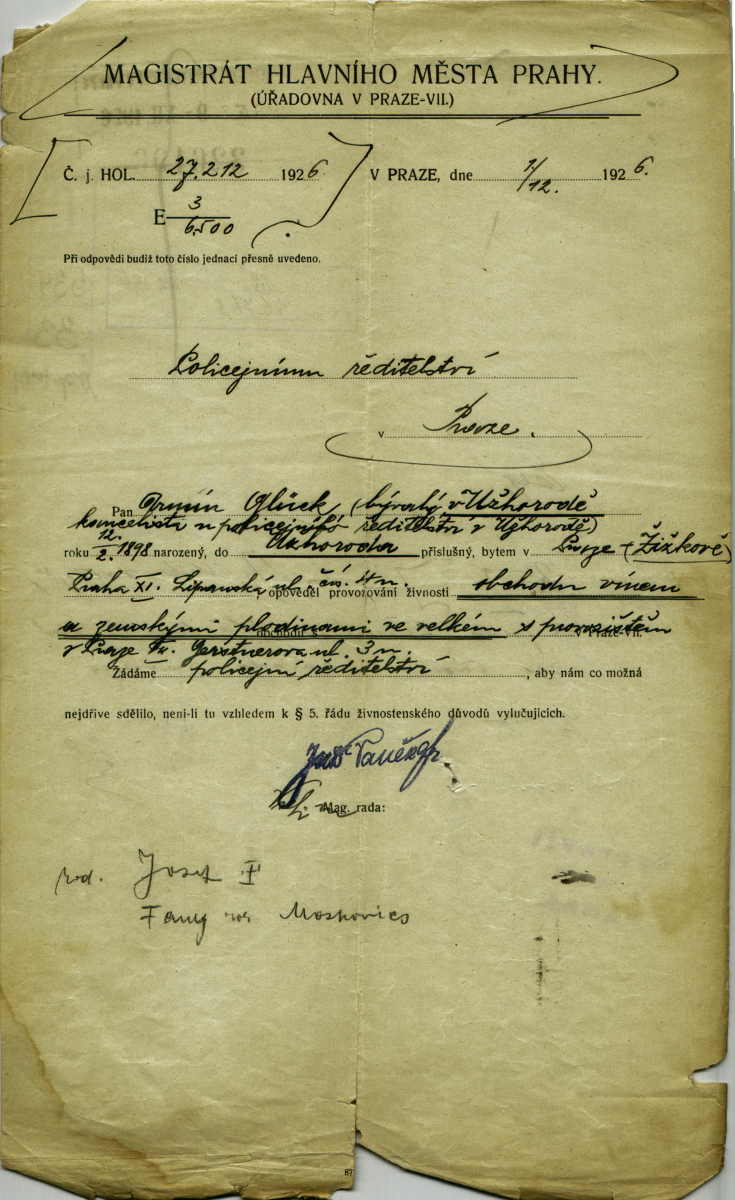 MAGISTRÁT HLAVNÍHO MĚSTA PRAHY.
(ÚŘADOVNA V PRAZE-VII.)
Č. j. HOL. 27.212 1926 V PRAZE, dne 1/12. 1926.
E 3/6.500
Při odpovědi budiž toto číslo jednací přesně uvedeno.
Policejnímu ředitelství
v Praze.
Pan Armín Glück, (bývalý v Užhorodě
kancelista u policejního ředitelství v Užhorodě)
roku 12./2. 1898 narozený, do Užhoroda příslušný, bytem v Praze (Žižkově)
Praha XI. Lipanská ul. čís. 4 n. opověděl provozování živnosti obchodu vínem
a zemskými plodinami ve velkém s provozištěm
v Praze VII. Gerstnerova ul. 3 n.
Žádáme policejní ředitelství, aby nám co možná
nejdříve sdělilo, není-li tu vzhledem k § 5. řádu živnostenského důvodů vylučujících.
Mag. rada:
rod. Josef
Fany roz. Moskovics
87